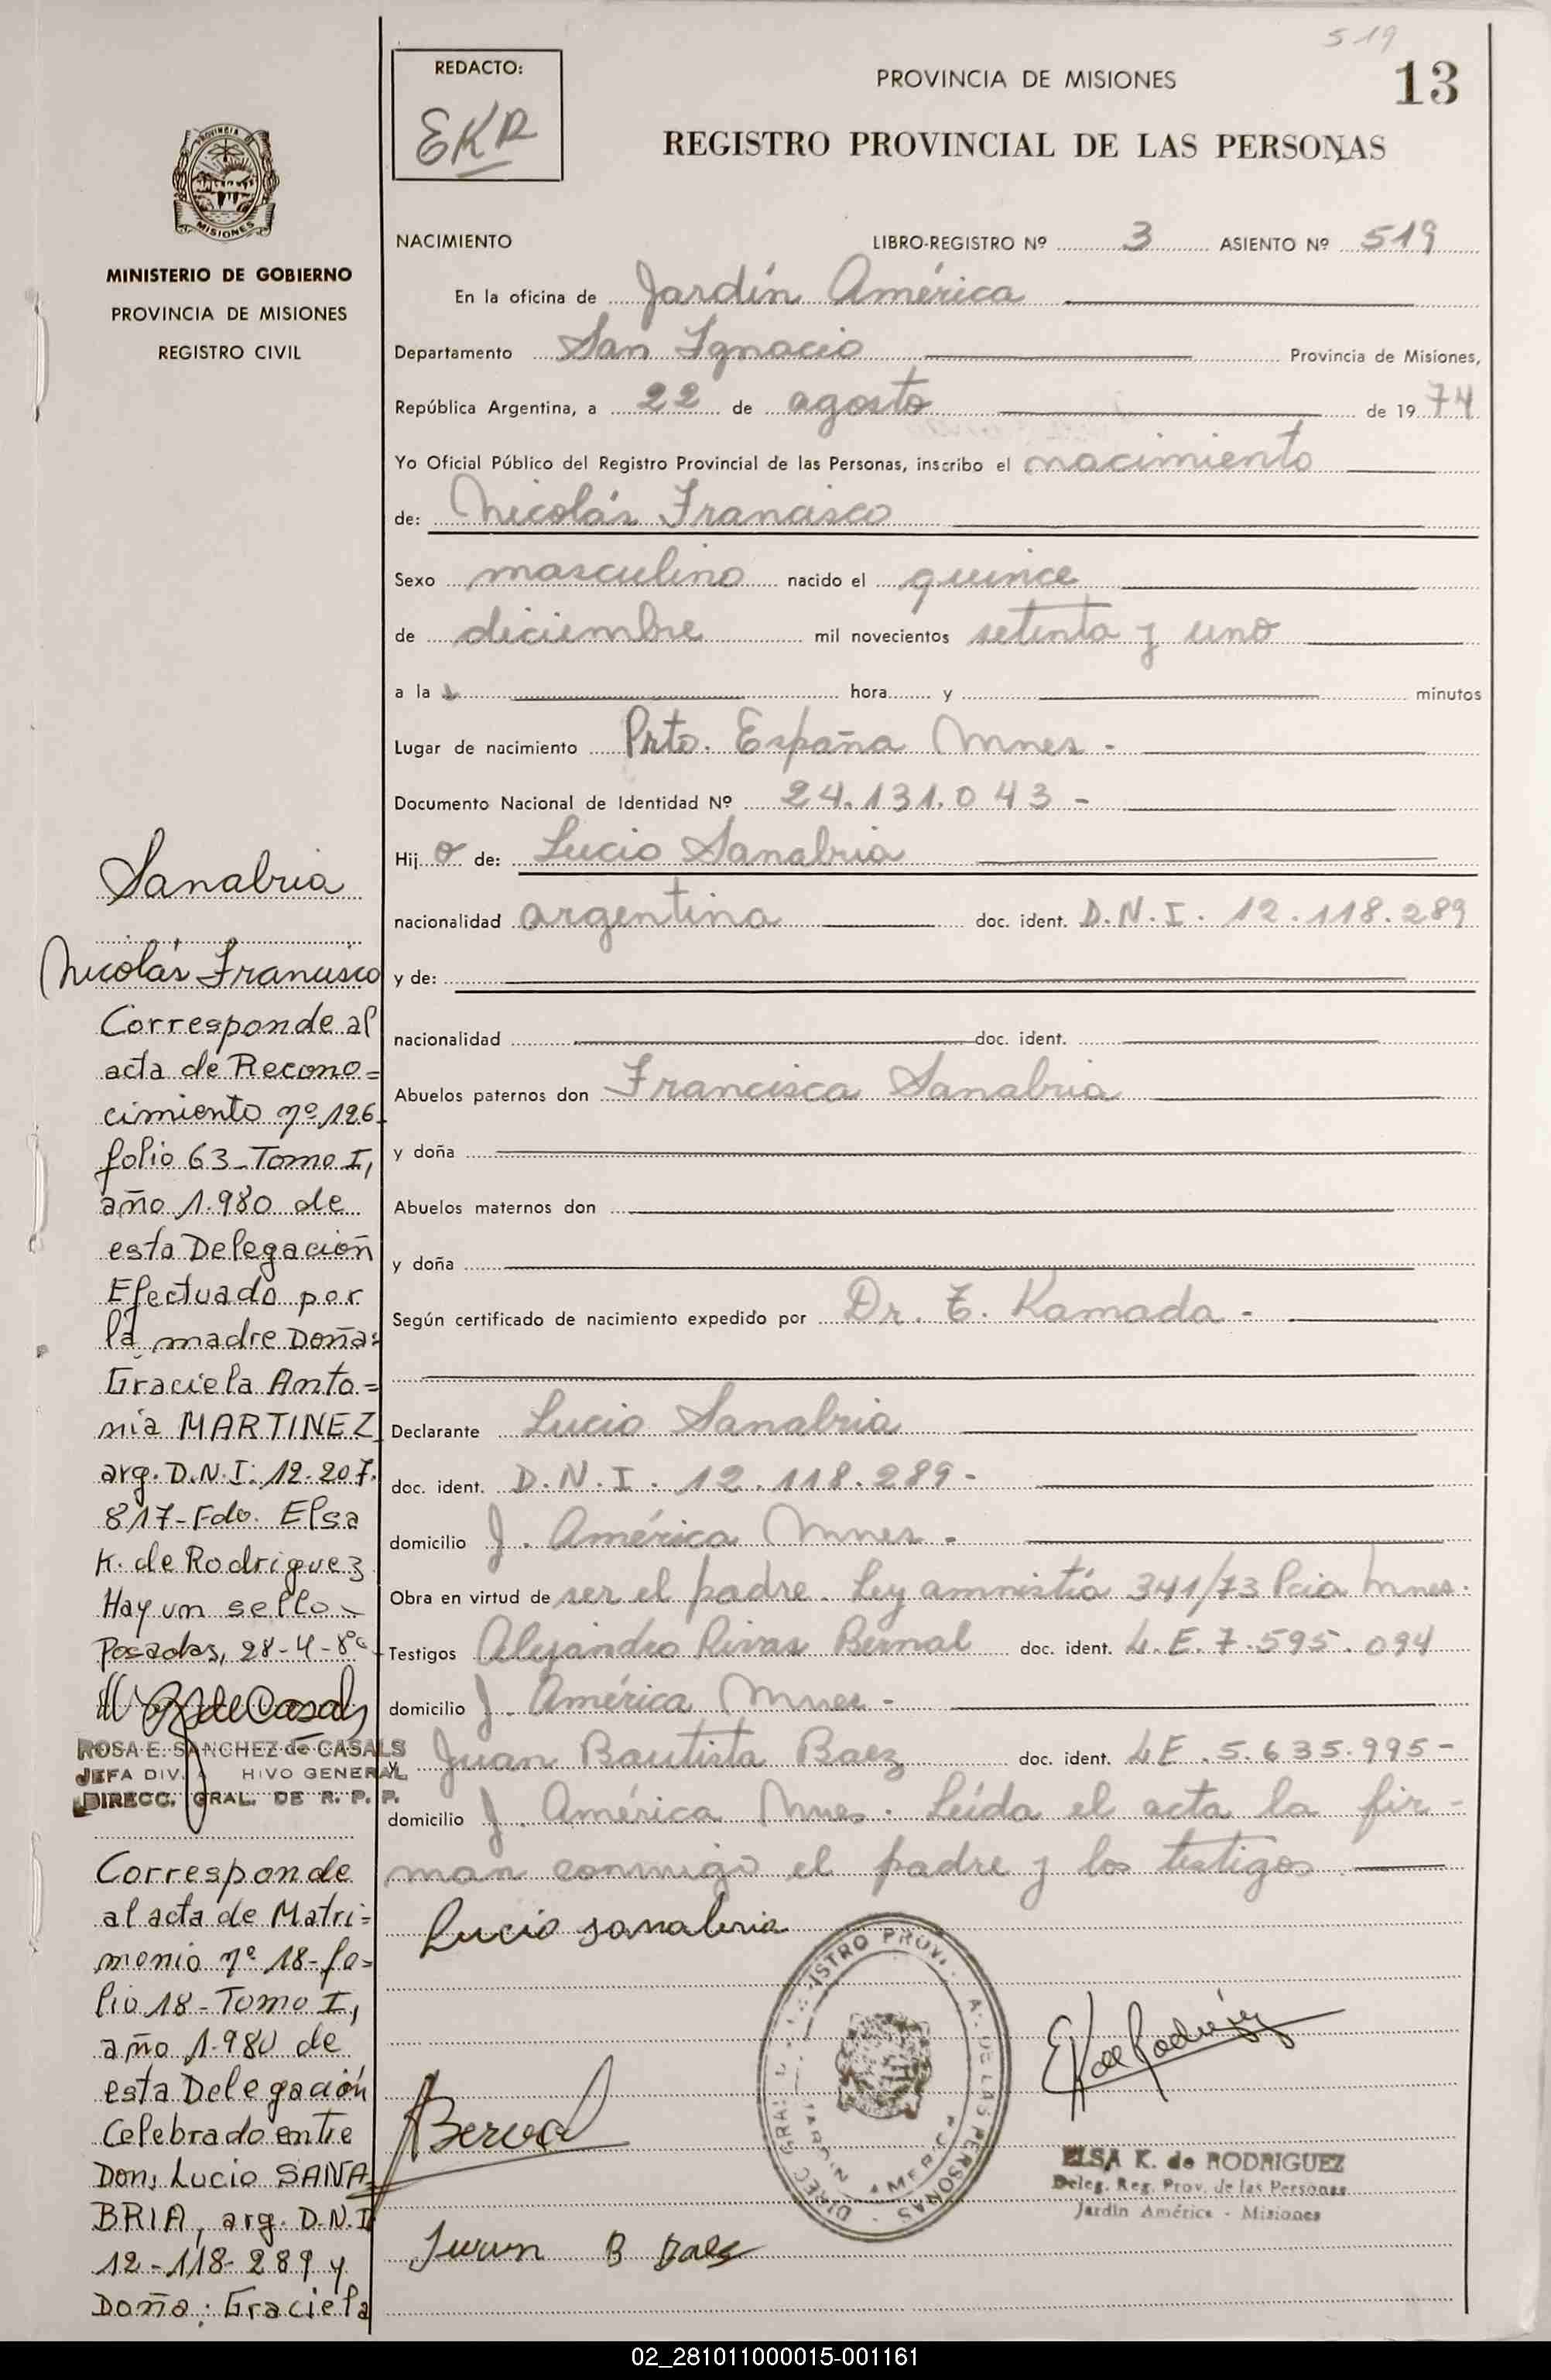 519
13
REDACTO:
EKR
PROVINCIA DE MISIONES
REGISTRO PROVINCIAL DE LAS PERSONAS
PROVINCIA DE
MISIONES
MINISTERIO DE GOBIERNO
PROVINCIA DE MISIONES
REGISTRO CIVIL
NACIMIENTO LIBRO-REGISTRO Nº 3 ASIENTO Nº 519
En la oficina de Jardín América
Departamento San Ignacio Provincia de Misiones,
República Argentina, a 22 de agosto de 19 74
Yo Oficial Público del Registro Provincial de las Personas, inscribo el nacimiento
de: Nicolás Francisco
Sexo masculino nacido el quince
de diciembre mil novecientos setenta y uno
a la hora y minutos
Lugar de nacimiento Prto. España Mnes -
Documento Nacional de Identidad Nº 24.131.043 -
Hij o de: Lucio Sanabria
nacionalidad argentina doc. ident. D.N.I. 12.118.289
y de:
nacionalidad doc. ident.
Abuelos paternos don Francisca Sanabria
y doña
Abuelos maternos don
y doña
Según certificado de nacimiento expedido por Dr. T. Kamada -
Declarante Lucio Sanabria
doc. ident. D.N.I. 12.118.289-
domicilio J. América Mnes -
Obra en virtud de ser el padre. Ley amnistía 341/73 Pcia Mnes.
Testigos Alejandro Rivas Bernal doc. ident. L.E. 7.595.094
domicilio J. América Mnes -
y Juan Bautista Baez doc. ident. LE. 5.635.995-
domicilio J. América Mnes. Leída el acta la fir-
man conmigo el padre y los testigos
Lucio sanabria
Bernal
Juan B Baes
EK de Rodriguez
ELSA K. de RODRIGUEZ
Deleg. Reg. Prov. de las Personas
Jardín América - Misiones
Sanabria
Nicolás Francisco
Corresponde al
acta de Recono=
cimiento nº 126
folio 63-Tomo I,
año 1.980 de
esta Delegación
Efectuado por
la madre Doña:
Graciela Anto=
nia MARTINEZ
arg. D.N.I: 12.207.
817-Fdo. Elsa
K. de Rodriguez
Hay un sello-
Posadas, 28-4-80
de Casals
ROSA E. SANCHEZ de CASALS
JEFA DIV. HIVO GENERAL
DIRECC. GRAL. DE R. P. P.
Corresponde
al acta de Matri=
monio nº 18-fo=
lio 18-Tomo I,
año 1.980 de
esta Delegación
Celebrado entre
Don, Lucio SANA
BRIA, arg. D.N.I
12-118-289 y
Doña: Graciela
02_281011000015-001161